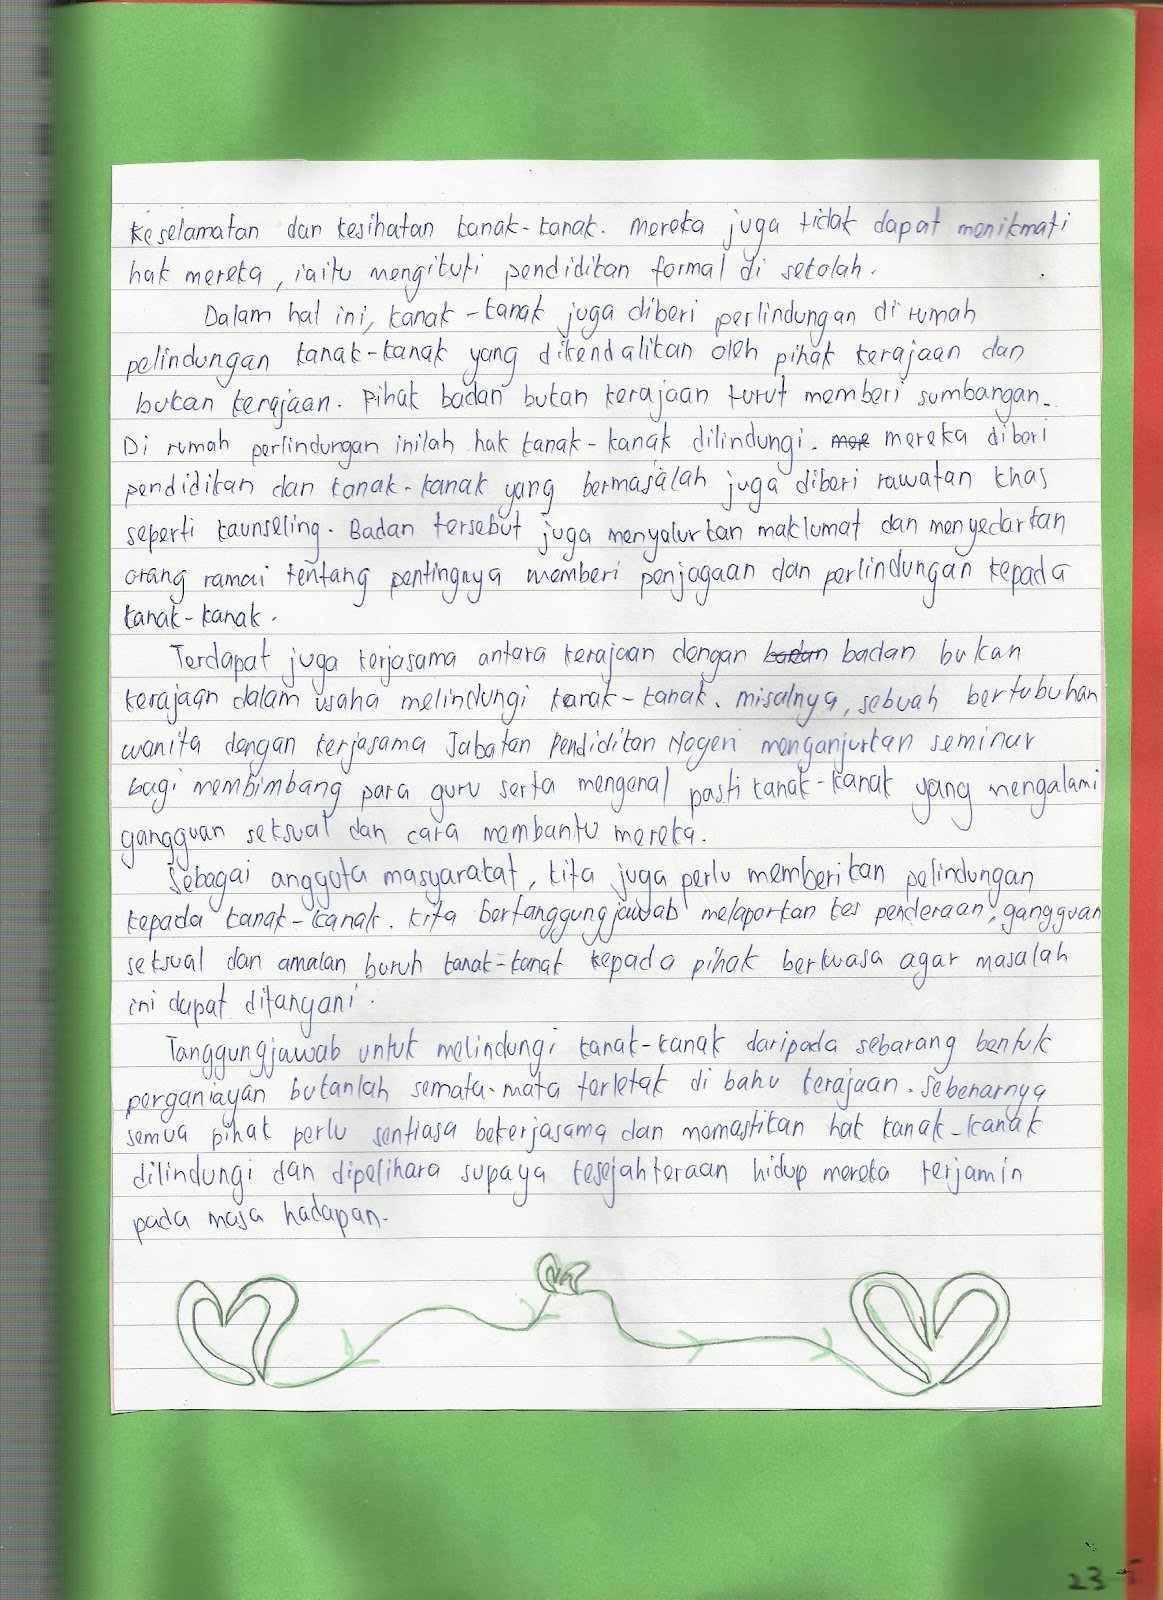 keselamatan dan kesihatan kanak-kanak. mereka juga tidak dapat menikmati
hak mereka, iaitu mengikuti pendidikan formal di sekolah.
Dalam hal ini, kanak-kanak juga diberi perlindungan di rumah
pelindungan kanak-kanak yang dikendalikan oleh pihak kerajaan dan
bukan kerajaan. Pihak badan bukan kerajaan turut memberi sumbangan.
Di rumah perlindungan inilah hak kanak-kanak dilindungi. mer mereka diberi
pendidikan dan kanak-kanak yang bermasalah juga diberi rawatan khas
seperti kaunseling. Badan tersebut juga menyalurkan maklumat dan menyedarkan
orang ramai tentang pentingnya memberi penjagaan dan perlindungan kepada
kanak-kanak.
Terdapat juga kerjasama antara kerajaan dengan badan badan bukan
kerajaan dalam usaha melindungi kanak-kanak. misalnya, sebuah pertubuhan
wanita dengan kerjasama Jabatan Pendidikan Negeri menganjurkan seminar
bagi membimbang para guru serta mengenal pasti kanak-kanak yang mengalami
gangguan seksual dan cara membantu mereka.
Sebagai anggota masyarakat, kita juga perlu memberikan pelindungan
kepada kanak-kanak. kita bertanggungjawab melaporkan kes penderaan, gangguan
seksual dan amalan buruh kanak-kanak kepada pihak berkuasa agar masalah
ini dapat ditangani.
Tanggungjawab untuk melindungi kanak-kanak daripada sebarang bentuk
penganiayan bukanlah semata-mata terletak di bahu kerajaan. Sebenarnya
semua pihak perlu sentiasa bekerjasama dan memastikan hak kanak-kanak
dilindungi dan dipelihara supaya kesejahteraan hidup mereka terjamin
pada masa hadapan.